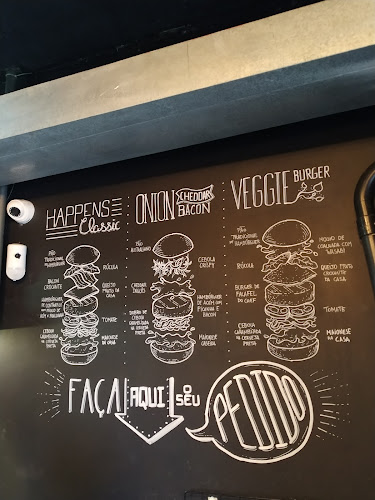 HAPPENS
Classic
PÃO
TRADICIONAL
HAMBÚRGUER
BACON
CROCANTE
HAMBÚRGUER
CEBOLA
CARAMELIZADA
NA CERVEJA
PRETA
RÚCULA
QUEIJO PRATO
DA CASA
TOMATE
MAIONESE
DA CASA
ONION
CHEDDAR
BACON
PÃO
AUSTRALIANO
CHEDDAR
INGLÊS
CEBOLA
CARAMELIZADA
NA CERVEJA
PRETA
CEBOLA
CRISPY
HAMBÚRGUER
DE ACÉM COM
PICANHA E
BACON
MAIONESE
CASEIRA
VEGGIE BURGER
PÃO
TRADICIONAL
HAMBÚRGUER
RÚCULA
BURGER DE
FALAFEL
DO CHEF
CEBOLA
CARAMELIZADA
NA CERVEJA
PRETA
MOLHO DE
COALHADA COM
WASABI
QUEIJO PRATO
CROCANTE
DA CASA
TOMATE
MAIONESE
DA CASA
FAÇA AQUI O SEU PEDIDO